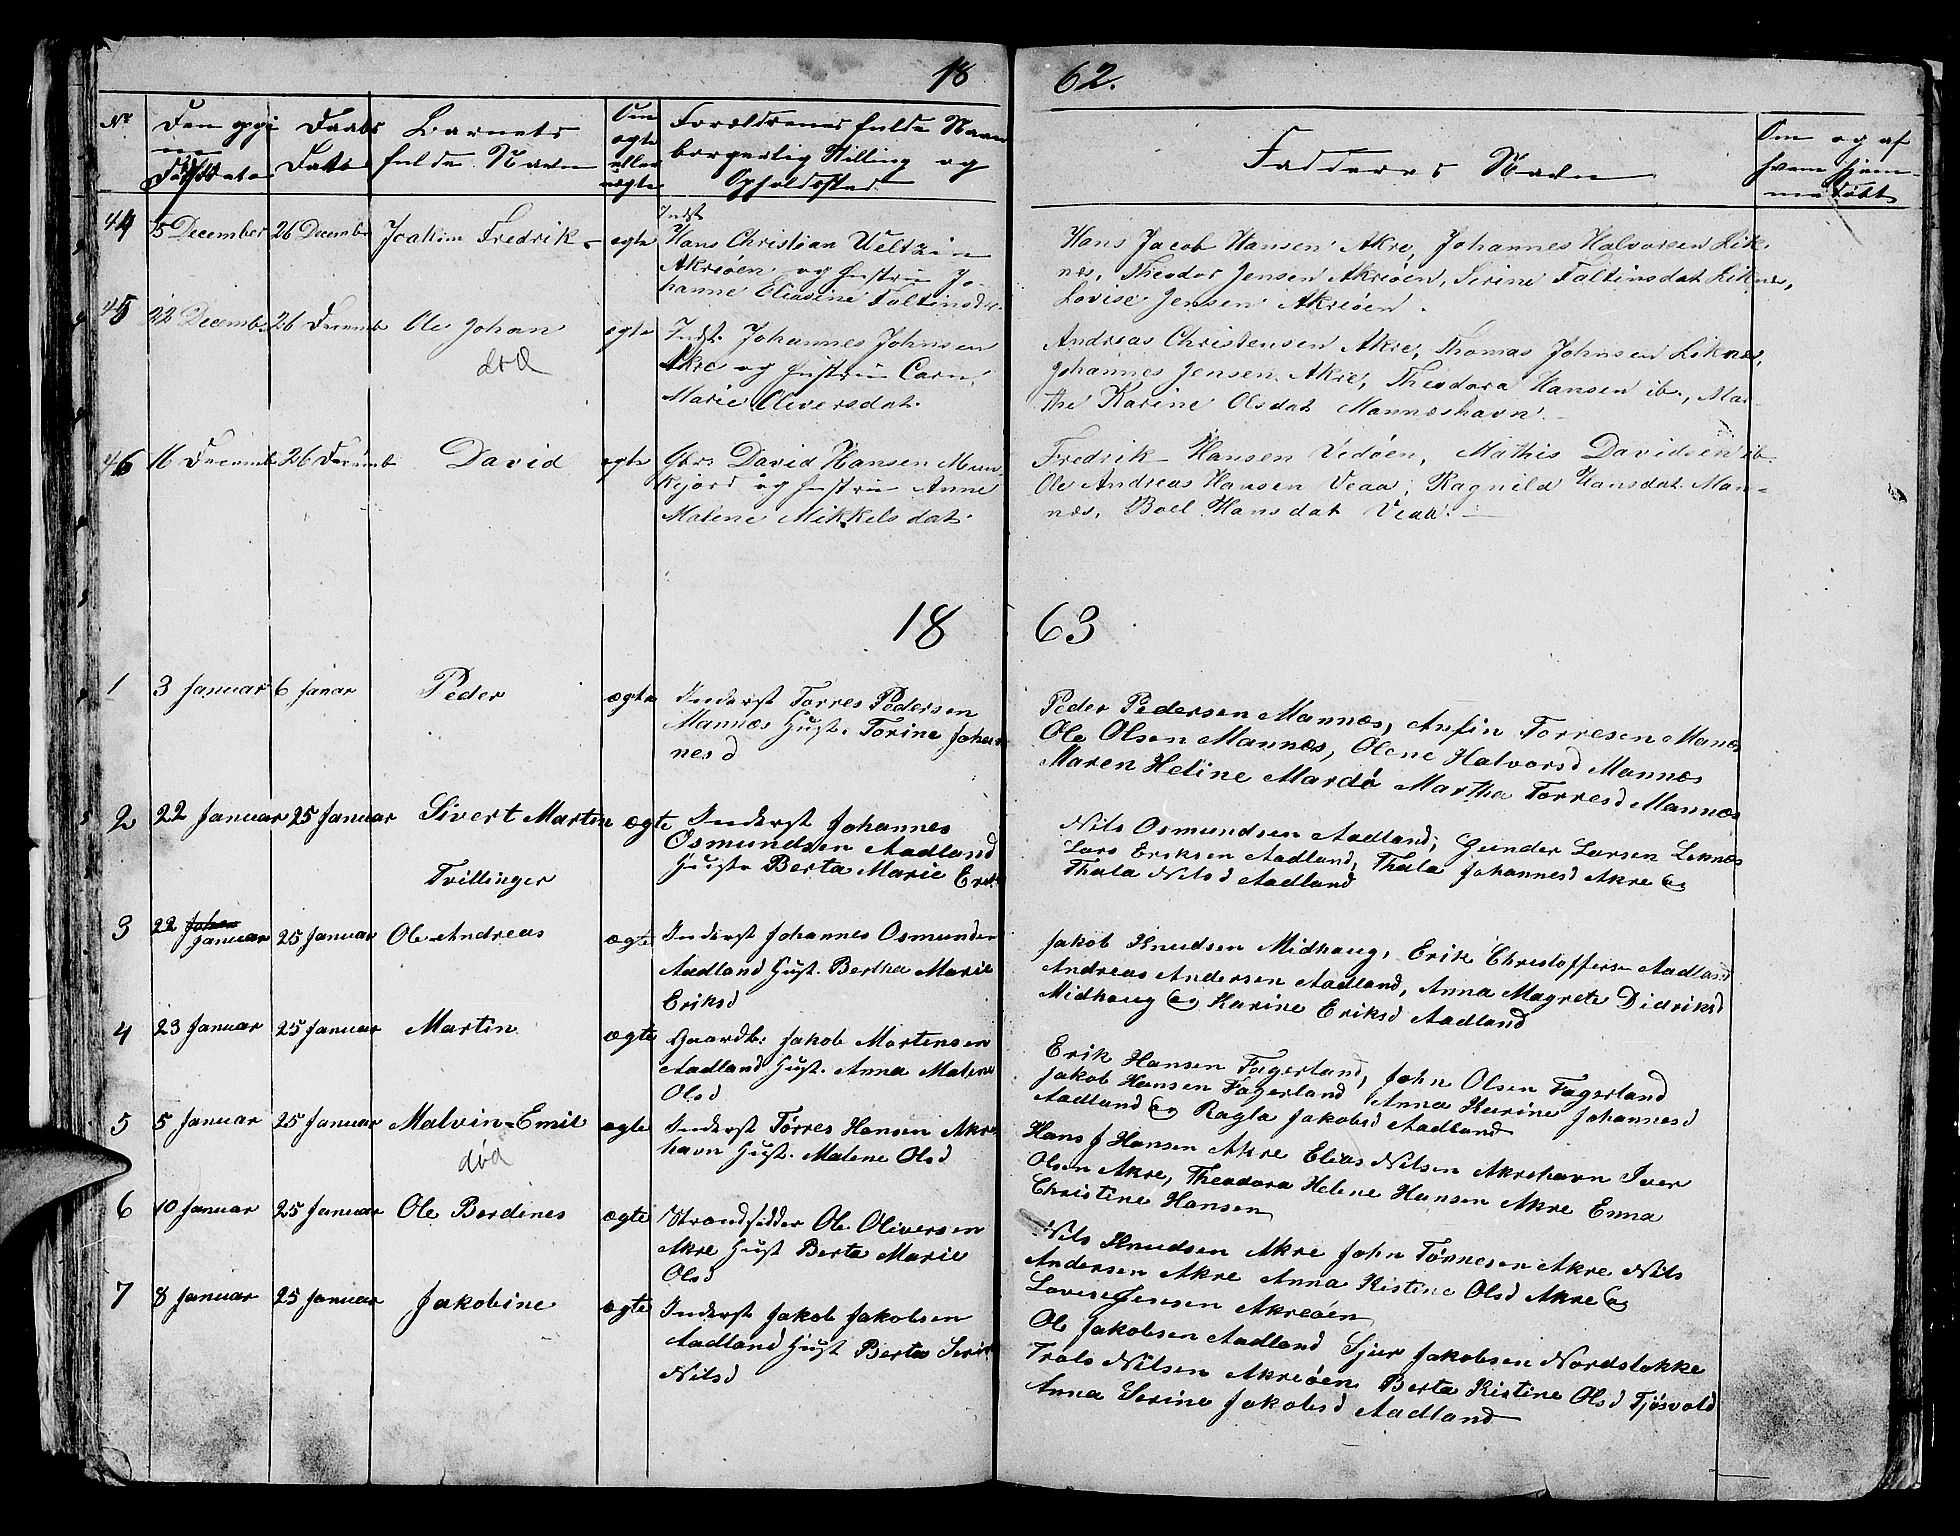 18 62.
Nr
Barnets
fulde Navn
Om
ægte
eller
uægte
Forældrenes fulde Navn
borgerlig Stilling og
Opholdssted
Faddernes Navn
Om og af
hvem hjem-
medøbt
44 5 December 26 December Joakim Fredrik ægte Indst
Hans Christian Weltzin
Akreøen og Hustru Jo-
hanne Eliasine Faltinsdr.
Hans Jacob Hansen Akre, Johannes Halvorsen Lik-
nes, Theodor Jensen Akreøen, Serine Faltinsdat Liknes,
Lovise Jensen Akreøen.
45 22 December 26 Decemb Ole Johan ægte
død
Indst. Johannes Johnsen
Akre og Hustru Caren
Marie Oliversdat.
Andreas Christensen Akre, Thomas Johnsen Liknes,
Johannes Jensen Akre, Theodora Hansen ib., Mar-
the Karine Olsdat Mannæshavn.
46 16 Decemb 26 Decemb David ægte
David Hansen Mun-
kejord og Hustru Anne
Malene Mikkelsdat.
Fredrik Hansen Vedøen, Mathis Davidsen ib.
Ole Andreas Hansen Veaa, Ragnild Hansdat. Man-
næs, Boel Hansdat Veaa.
18 63
1 3 Januar 6 Janar Peder ægte Inderst Torres Pedersen
Mannæs Hust. Torine Johan
nesd
Peder Pedersen Mannæs, Anfin Torresen Manæs
Ole Olsen Mannæs, Olene Halvorsd Mannæs
Maren Heline Mardø Martha Torresd Mannæs
2 22 Januar 25 Januar Sivert Martin ægte Inderst Johannes
Osmundsen Aadland
Hust. Berta Marie Eriks
Tvillinger
Nils Osmundsen Aadland, Gunder Larsen Leknes
Lars Eriksen Aadland, Thala Johannesd Akre og
Thala Nilsd Aadland
3 22 Januar 25 Januar Ole Andreas ægte Inderst Johannes Osmunden
Aadland Hust. Bertha Marie
Eriksd
Jakob Knudsen Midhaug, Erik Christoffersen Aadland
Andreas Andersen Aadland, Anna Magrete Didriksd
Midhaug og Karine Eriksd Aadland
4 23 Januar 25 Januar Martin ægte Gaardb: Jakob Mortensen
Aadland Hust. Anna Malene
Olsd
Erik Hansen Fagerland, John Olsen Fagerland
Jakob Hansen Fagerland Anna Karine Johannesd
Aadland og Ragla Jakobsd Aadland
5 5 Januar 25 Januar Malvin-Emil ægte Inderst Tørres Hansen Akre
havn Hust. Malene Olsd
død
Hans J Hansen Akre Elias Nilsen Akrehavn Iver
Olsen Akre, Theodora Helene Hansen Akre Enna
Christine Hansen
6 10 Januar 25 Januar Ole Berdines ægte Strandsidder Ole Oliversen
Akre Hust Berta Marie
Olsd
Nils Knudsen Akre John Tønnesen Akre Nils
Andersen Akre Anna Kistine Olsd Akre og
Lovise Jensen Akreøen
7 8 Januar 25 Januar Jakobine ægte Inderst Jakob Jakobsen
Aadland Hust Berta Serine
Nilsd
Ole Jakobsen Aadland Sjur Jakobsen Nordstokke
Trols Nilsen Akreøen Berta Kistine Olsd Tjøsvold
Anna Serine Jakobsd Aadland